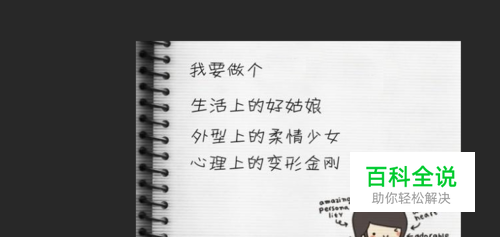 我要做个
生活上的好姑娘
外型上的柔情少女
心理上的变形金刚
百科全说
助你轻松解决
amazing
persona
lity
heart
adorable